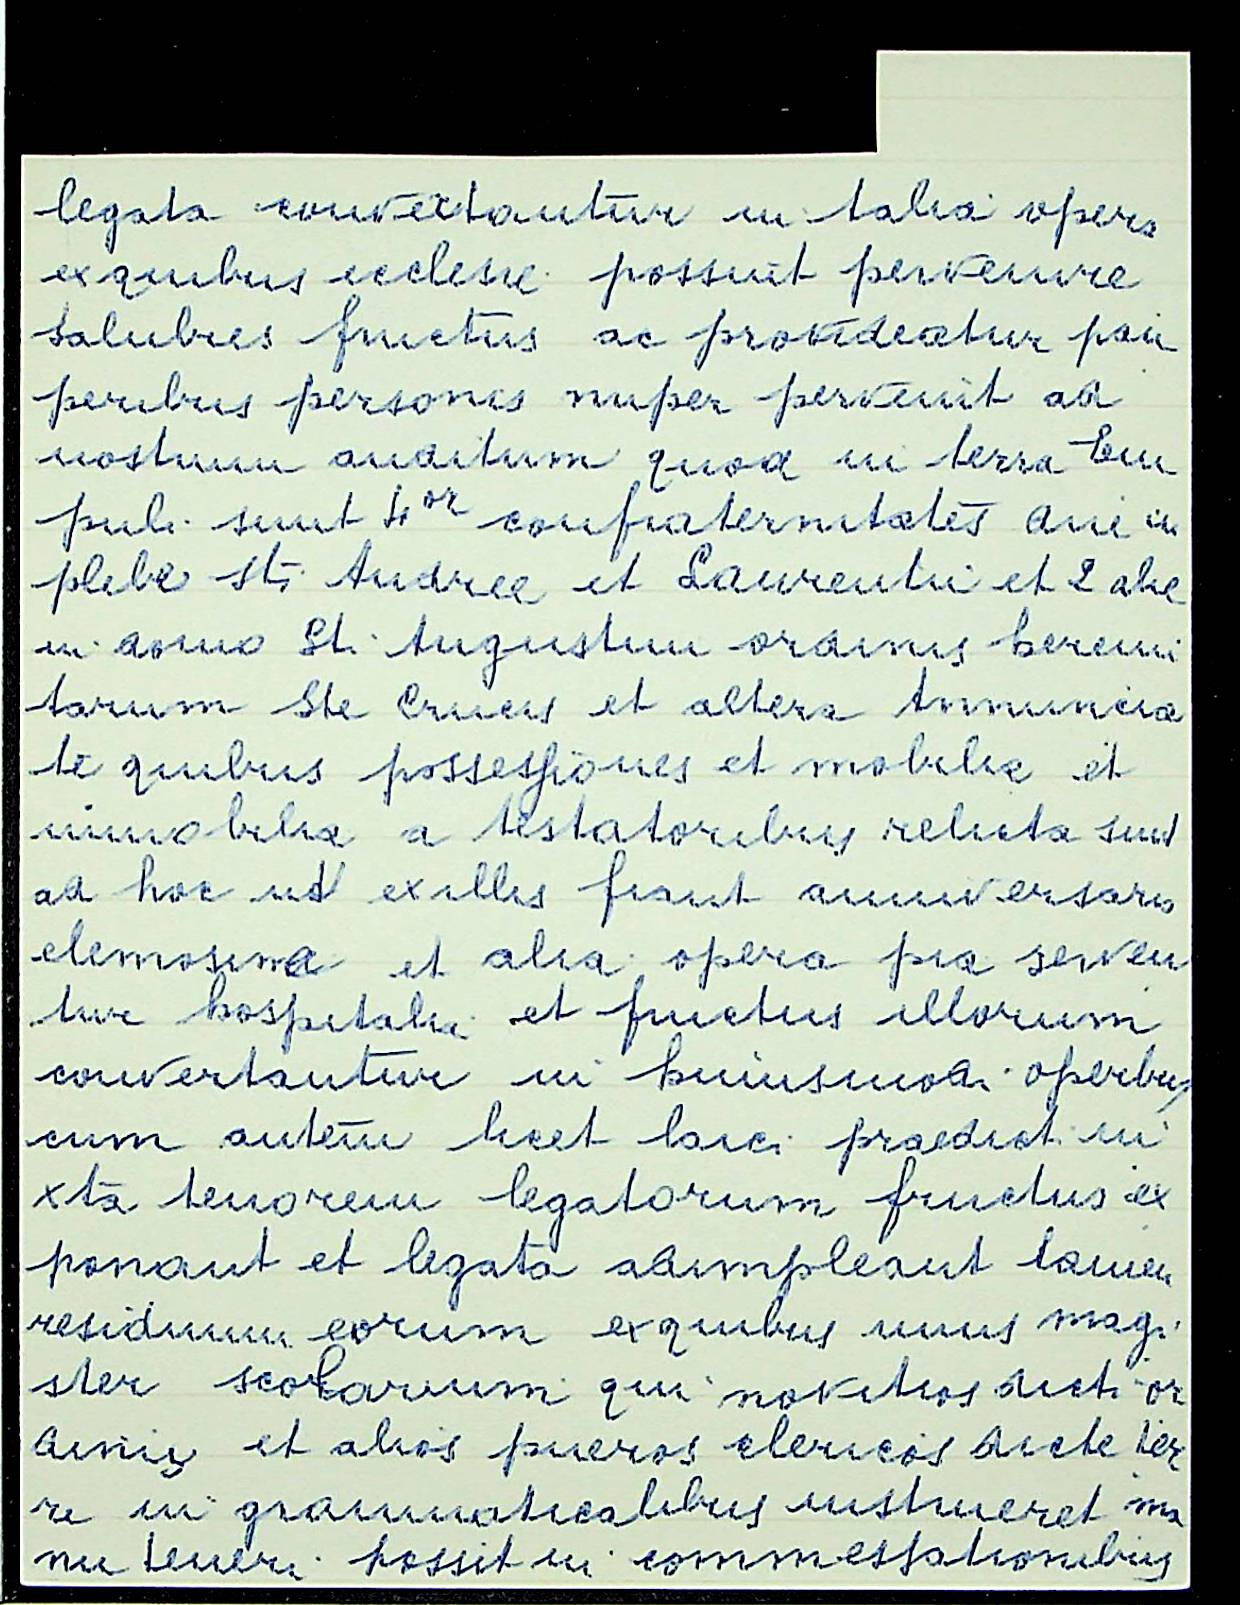 legata convertantur in talia opera
ex quibus ecclesie possint pervenire
salubres fructus ac provideatur pau
peribus personis nuper pervenit ad
nostrum auditum quod in terra Em
puli sunt 4or confraternitates due in
plebe Sti Andree et Laurentii et 2 alie
in domo Sti Augustini ordinis heremi
tarum Ste Crucis et altera Annuncia
te quibus possessiones et mobilia et
immobilia a testatoribus relicta sunt
ad hoc ut ex illis fiant anniversaria
elemosina et alia opera pia serven
tur hospitalia et fructus illorum
convertantur in huiusmodi operibus
cum autem licet laici praedicti iu
xta tenorem legatorum fructus ex
ponant et legata adimpleant tamen
residuum eorum ex quibus unus magi
ster scolarum qui novitios dicti or
dinis et alios pueros clericos dicte ter
re in grammaticalibus instrueret ma
nu teneri possit in commessationibus